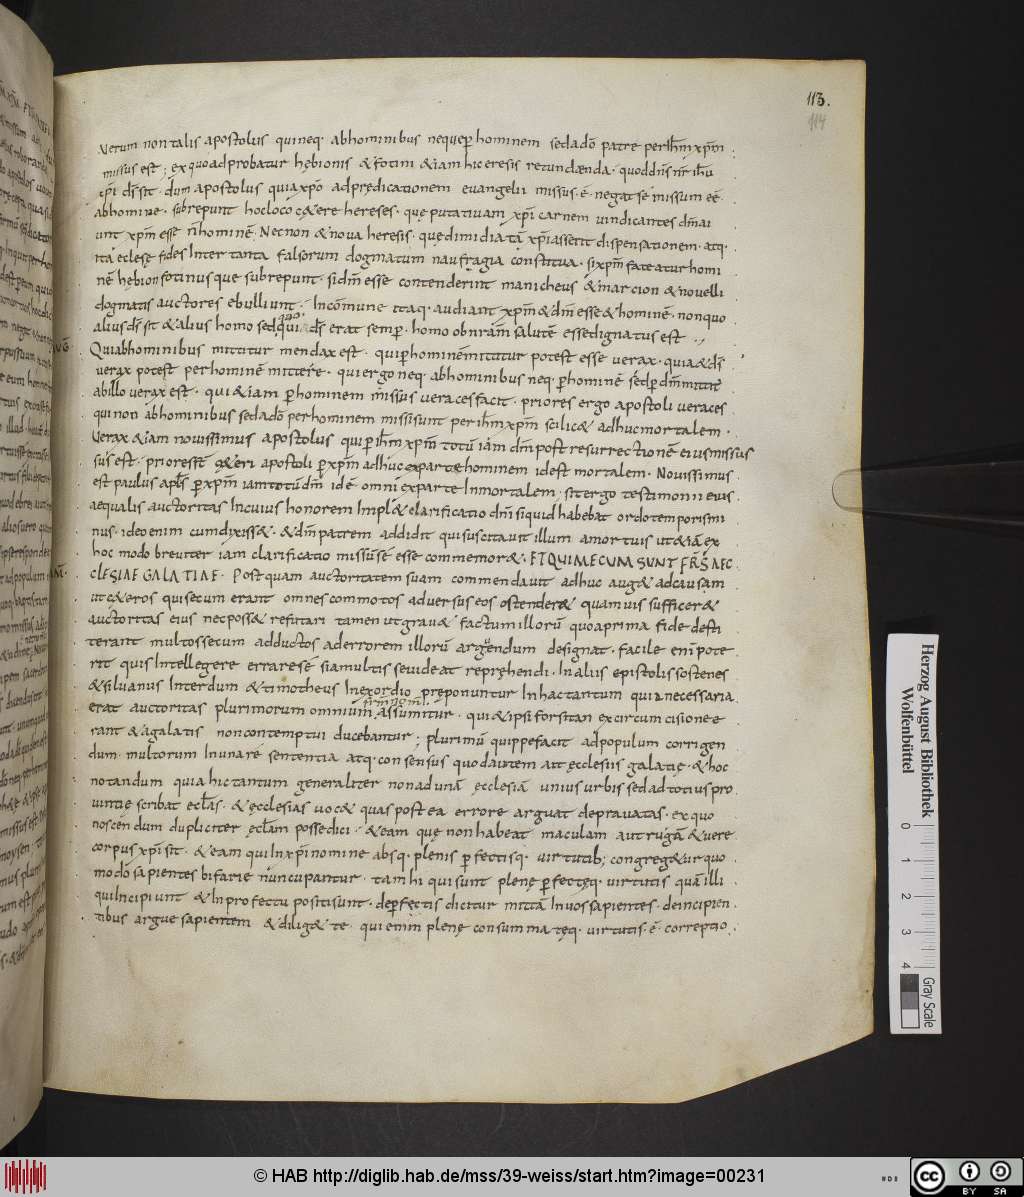 113.
114
uerum non talis apostolus quineq· abhominibus nequeper hominem sedadō patre perihm xpm
missus est; exquoadprobatur hębionis & fotini &iam hiceresis retundænda· quoddn̄s nr̄ ihū
xpi dr̄ sit· dum apostolus quiaxpō adpredicationem euangelii missus·ē· negat sé missum eē
abhomine· subrepunt hocloco cęere hereses· quę putatiuam xpi carnem uindicantes dm̄ ai
unt xpm esse n̄ hominē. Necnon & noua heresis· quędimidiatā xpi asserit dispensationem· atq·
ita eclesę fides Inter tanta falsorum dogmatum naufragia constitua· sixpm fateatur homi
nē hębion fotinusque subrepunt· sidm̄ esse contenderint manicheus & marcion & nouelli
dogmatis auctores ebulliunt· Incōmune itaq· audiant xpm & dm̄ esse & hominē· nonquo
alius dr̄ sit & alius homo sedquia dr̄ erat semp· homo obnr̄am salutē essedignatus est·,
Quiabhominibus mittitur mendax est· quip hominē mittitur potest esse uerax· quia & dr̄
uerax potest per hominē mittere· qui ergo neq· abhominibus neq· p hominē sed p dm̄ mittitē
abillo uerax est· qui &iam p hominem missus ueracesfacit· priores ergo apostoli ueraces
quinon abhominibus sedadō perhominem missisunt per ihm xpm scilic& adhucmortalem·
Uerax &iam nouissimus apostolus quip ihm xpm totū iam dm̄ post resurrectionē eiusmissus
sus est· prioresst̄ c&eri apostoli p xpm adhuc exparte hominem idest mortalem· Nouissimus
est paulus apls p xpm iamtotū dm̄ idē omni exparte Inmortalem, sit ergo testimonii eius
aequalis auctoritas Incuius honorem Impl& clarificatio dn̄i siquid habebat ordotemporismi
nus· ideo enim cumdixiss&· & dm̄ patrem addidit quisuscitauit illum amortuis ut&iā ex
hoc modo breuiter iam clarificatio missus̄ esse commemor&· ET QUI MECUM SUNT FR̄S̄ AEC
CLESIAE GALATIAE· Postquam auctoritatem suam commendauit adhuc aug& adcausam
utc&eros quisecum erant omnes commotos aduersus eos ostender& quamuis suffficer&
auctoritas eius necposs& refutari tamen utgrau& factum illorū quoaprima fide defti
terant multossecum adductos aderrorem illorū arguendum designat· facile enī pote
rit quis Intellegere errarese siamultis seuideat repręhendi· Inaliis epistolis sostenes
& siluanus Interdum & timotheus Inexordio pręponuntur Inhactantum quia necessaria
erat auctoritas plurimorum omnium assumitur· qui & ipsi forsitan excircumcisione e
rant & agalatis noncontemptui ducebantur; plurimū quippefacit adpopulum corrigen
dum· multorum Inunare sententia atq· consensus quodautem ait ęcclesiis galatię· & hoc
notandum quia hic tantum generaliter nonadunā ęcclesiā unius urbis sedad totius pro
uintię scribat ecl̄as· & ęcclesias uoc& quas postea errore arguat deprauatas· exquo
noscendum dupliciter ęcl̄am possedici· & eam quę nonhabeat maculam autrugā & uere
corpus xpi sit· & eam quiInxpi nomine absq· plenis p fectisq· uirtutib; congreg&ur quo
modō sapientes bifarie nuncupantur· tamhi qui sunt plenę p fectęq· uirtutis quā illi
quiIncipiunt & Inprofectu positisunt· dep fectis dicitur mittā Inuossapientes· deincipien
tibus argue sapientem & dilig& te· qui enim plenę consummatęq· uirtutis·ē· correptio
Herzog August Bibliothek
Wolfenbüttel
0 1 2 3 4
Gray Scale
© HAB http://diglib.hab.de/mss/39-weiss/start.htm?image=00231
cc BY SA